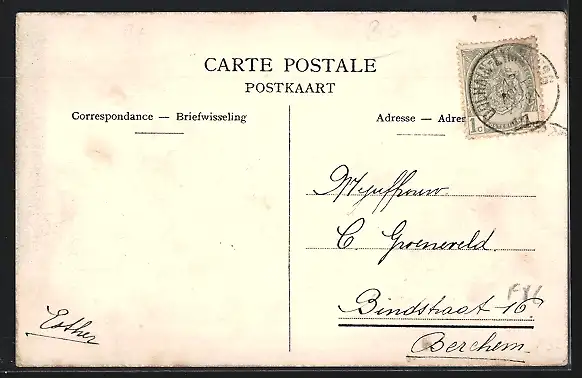 CARTE POSTALE
POSTKAART
Correspondance — Briefwisseling
Adresse — Adres
1c 1
Mejuffrouw
C. Groeneveld
Bindstraat 16
Berchem.
Esther